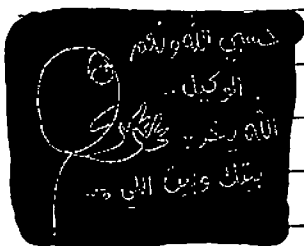 حسبي الله ونعم
الوكيل..
الله يخرب
بيتك وبيت اللي